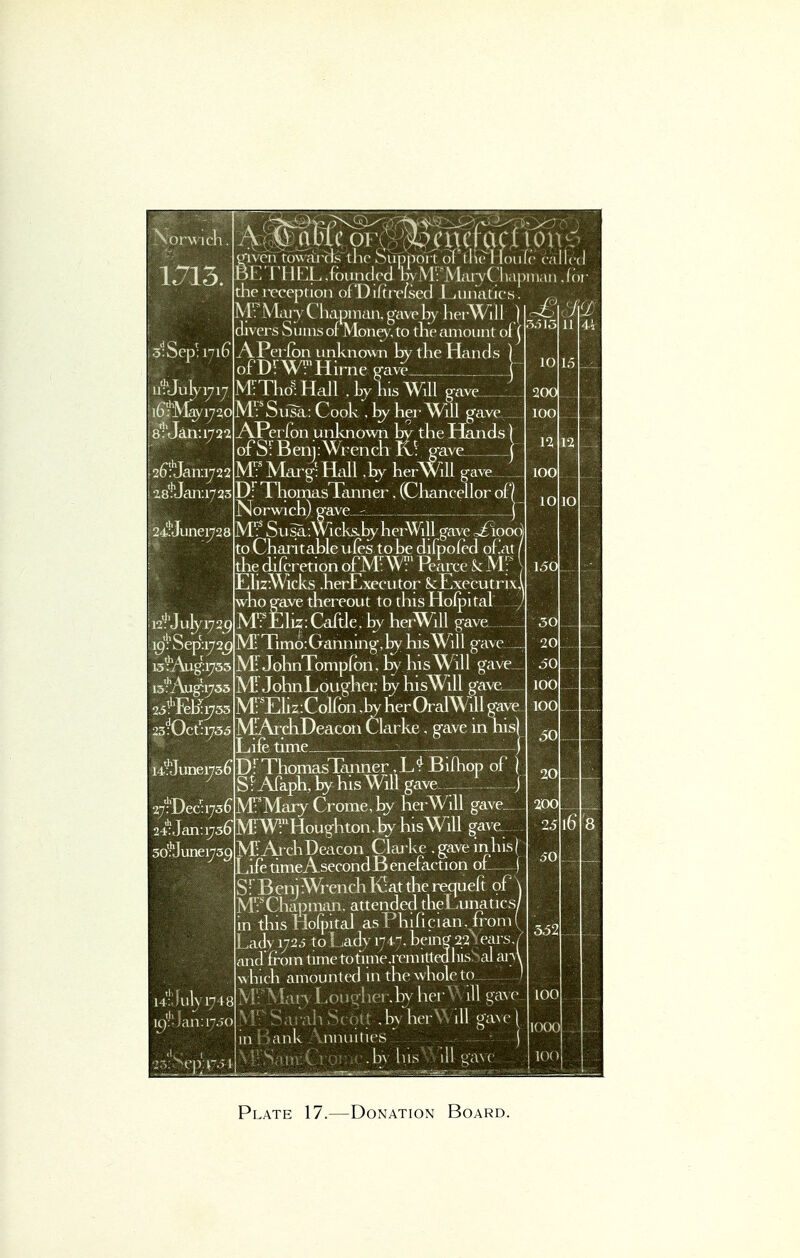 Norwich.
1713.
A Table OF Benefactions
given towards the Support of the Houſe called
BETHEL, founded by Mrs Mary Chapman, for
the reception of Diſtreſsed Lunatics.
£ S D
Mrs Mary Chapman, gave by her Will
divers Sums of Money, to the amount of 3513 11 4½
3d Sepr 1716 A Perſon unknown by the Hands
of Dr Wm Hirne gave 10 15
11th July 1717 Mr Thos Hall, by his Will gave 200
16th May 1720 Mrs Susa: Cook, by her Will gave 100
8th Jan: 1722 A Perſon unknown by the Hands
of Sr Benj: Wrench Kt gave 12 12
26th Jan: 1722 Mrs Margt Hall, by her Will gave 100
28th Jan: 1723 Dr Thomas Tanner, (Chancellor of
Norwich) gave 10 10
24th June 1728 Mrs Susa: Wicks, by her Will gave £1000
to Charitable uſes to be diſpoſed of, at
the diſcretion of Mr Wm Pearce & Mrs
Eliz: Wicks, her Executor & Executrix,
who gave thereout to this Hoſpital 150
12th July 1729 Mrs Eliz: Caſtle, by her Will gave 30
19th Sep: 1729 Mr Timo: Ganning, by his Will gave 20
13th Aug: 1733 Mr John Tompſon, by his Will gave 50
13th Aug: 1733 Mr John Lougher: by his Will gave 100
25th Feb: 1733 Mrs Eliz: Colſon, by her Oral Will gave 100
23d Oct: 1735 Mr Arch Deacon Clarke, gave in his
Life time 50
14th June 1736 Dr Thomas Tanner, Ld Biſhop of
St Aſaph, by his Will gave 20
27th Dec: 1736 Mrs Mary Crome, by her Will gave 200
24th Jan: 1736 Mr Wm Houghton, by his Will gave 25 16 8
30th June 1739 Mr Arch Deacon Clarke, gave in his
Life time A second Benefaction of 50
Sr Benj: Wrench Kt at the requeſt of
Mrs Chapman, attended the Lunatics
in this Hoſpital as Phiſician, from
Lady 1725 to Lady 1747, being 22 Years,
and from time to time, remitted his Salary
which amounted in the whole to 352
14th July 1748 Mrs Mary Lougher, by her Will gave 100
19th Jan: 1750 Mrs Sarah Scott, by her Will gave
in Bank Annuities 1000
23d Sep: 1754 Mr Sam: Crome, by his Will gave 100
PLATE 17.—DONATION BOARD.